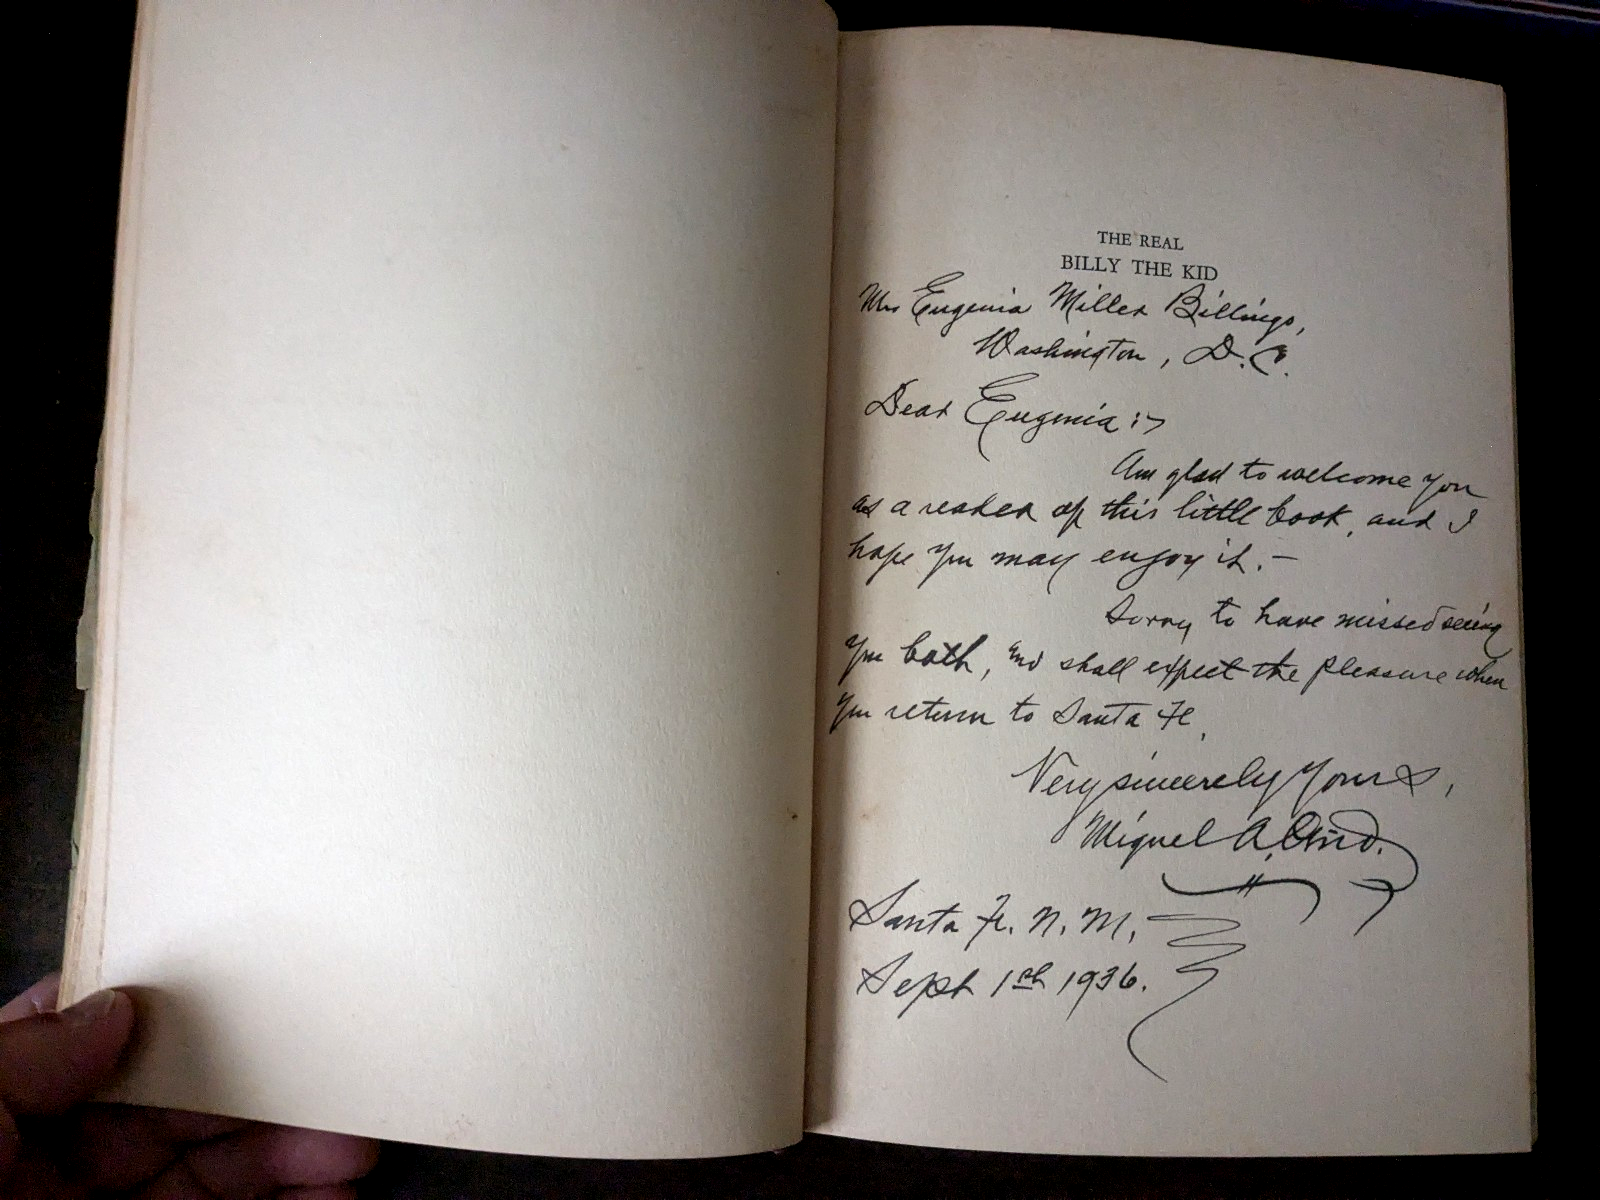 THE REAL
BILLY THE KID
Mrs Eugenia Miller Billings,
Washington, D.C.
Dear Eugenia:-
Am glad to welcome you
as a reader of this little book, and I
hope you may enjoy it. -
Sorry to have missed seeing
you both, and shall expect the pleasure when
you return to Santa Fe.
Very sincerely Yours,
Miguel A. Otero.
Santa Fe. N. M.
Sept 1st 1936.